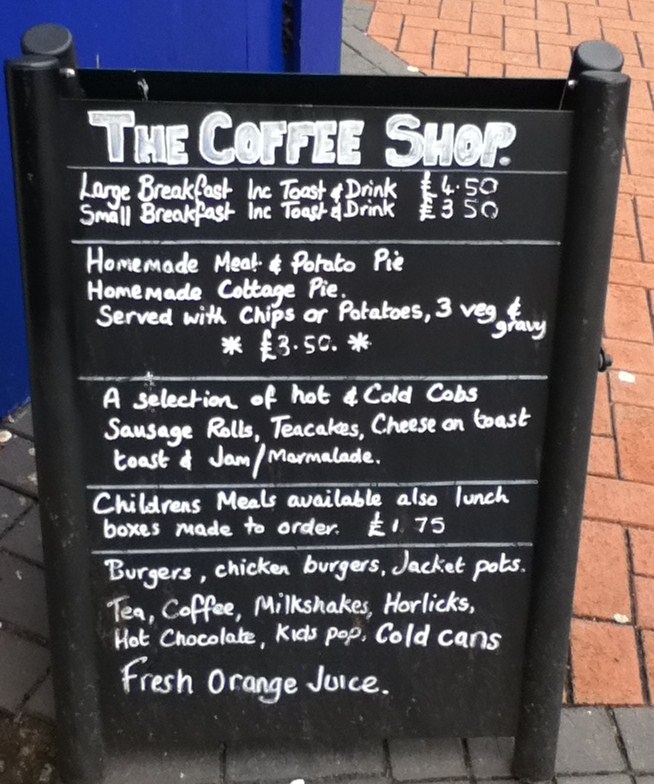 THE COFFEE SHOP.
Large Breakfast Inc Toast & Drink £4.50
Small Breakfast Inc Toast & Drink £3 50
Homemade Meat & Potato Pie
Homemade Cottage Pie.
Served with Chips or Potatoes, 3 veg & gravy
* £3.50. *
A selection of hot & Cold Cobs
Sausage Rolls, Teacakes, Cheese on toast
toast & Jam/Marmalade.
Childrens Meals available also lunch
boxes made to order. £1 75
Burgers, chicken burgers, Jacket pots.
Tea, Coffee, Milkshakes, Horlicks,
Hot Chocolate, Kids pop, Cold cans
Fresh Orange Juice.